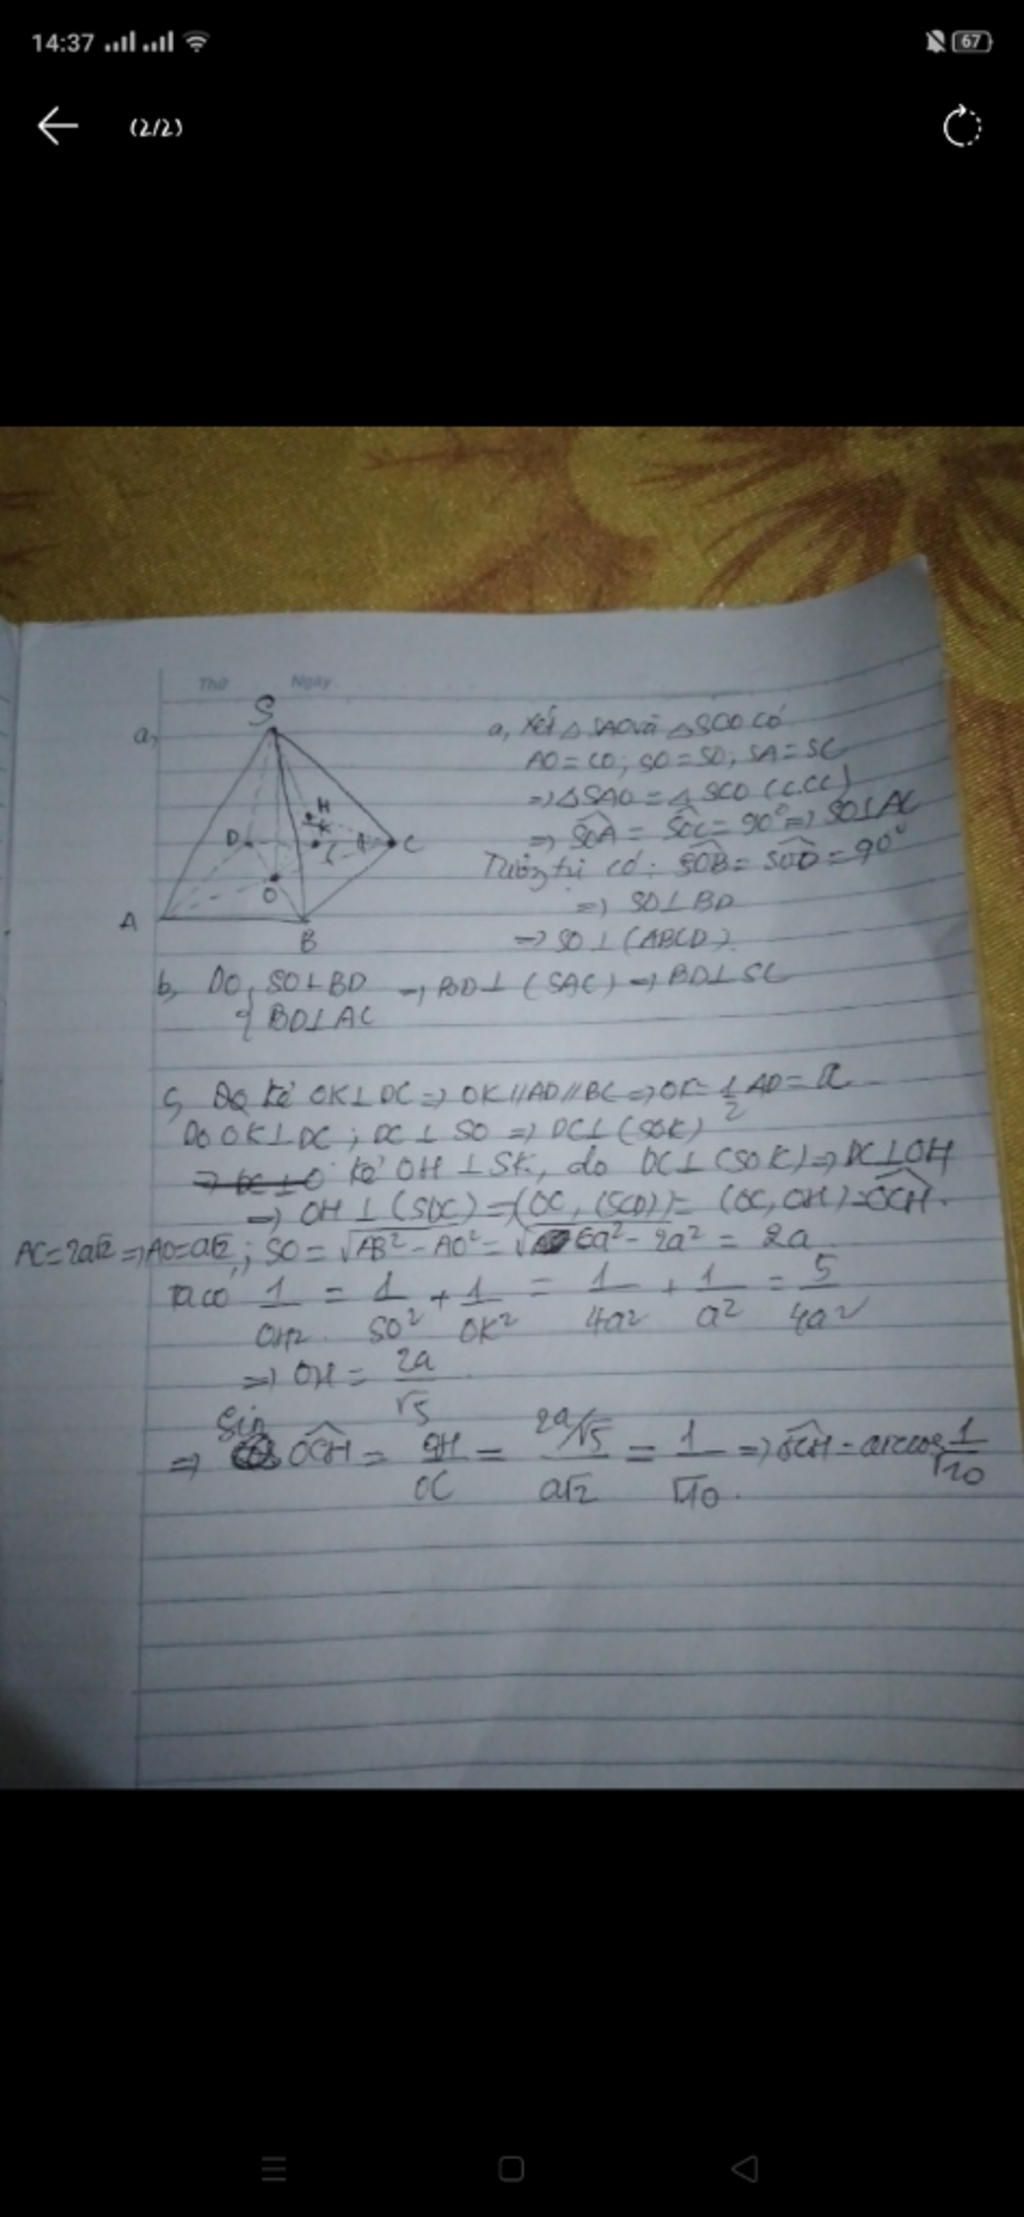 14:37
67
(2/2)
Thứ Ngày
a,
S
H
K
D
C
O
A
B
a, Xét △SAO và △SCO có
AO=CO; SO=SO; SA=SC
=> △SAO = △SCO (c.c.c)
=> SOA = SOC = 90° => SO⊥AC
Tương tự có: SOB = SOD = 90°
=> SO⊥BD
=> SO⊥(ABCD).
b, Do { SO⊥BD => BD⊥(SAC) => BD⊥SC
BD⊥AC
c, Kẻ OK⊥DC => OK//AD//BC => OK = 1/2 AD = a
Do OK⊥DC; DC⊥SO => DC⊥(SOK)
kẻ OH⊥SK, do DC⊥(SOK) => DC⊥OH
=> OH⊥(SDC) => (OC, (SCD)) = (OC, OH) = OCH.
AC=2a√2 => AO=a√2; SO = √AB² - AO² = √6a² - 2a² = 2a
Ta có 1/OH² = 1/SO² + 1/OK² = 1/4a² + 1/a² = 5/4a²
=> OH = 2a/√5
=> Sin OCH = OH/OC = 2a/√5 / a√2 = 1/√10 => OCH = arccos 1/√10